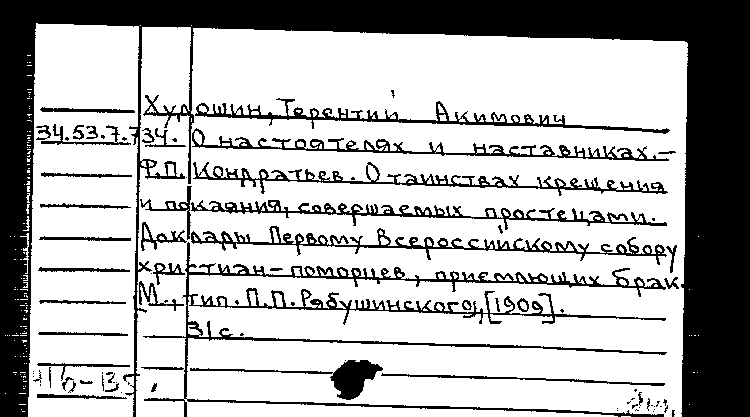 Худошин, Терентий Акимович
34.53.7.734. О настоятелях и наставниках.–
Ф.П. Кондратьев. О таинствах крещения
и покаяния, совершаемых простецами.
Доклады Первому Всероссийскому собору
христиан-поморцев, приемлющих брак.
[М., тип. П.П. Рябушинского], [1909].
31 с.